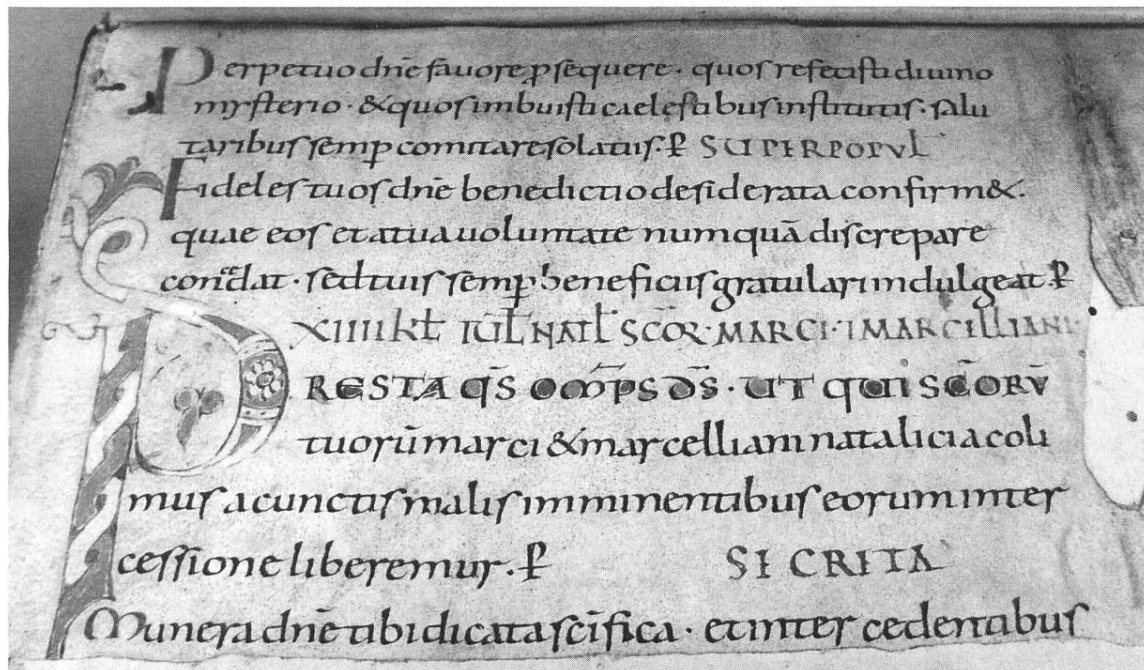 Perpetuo dnē favore ꝓsequere · quos refecisti divino
mysterio · & quos imbuisti caelestibus institutis · salu
taribus semꝑ comitare solatiis · ꝑ SUPER POPUL̄
Fideles tuos dnē benedictio desiderata confirm& ·
quae eos et a tua uoluntate numquā discrepare
concedat · sed tuis semꝑ beneficiis gratulari indulgeat · ꝑ
XIIII KŁ IUŁ NAŁ SCŌR · MARCI · & MARCELLIANI ·
PRESTA QS̄ OMP̄S DS̄ · UT QUI SCŌRŪ
tuorū marci & marcelliani natalicia coli
mus a cunctis malis imminentibus eorum inter
cessione liberemur · ꝑ SECRETA
Munera dnē tibi dicata scīfica · et intercedentibus